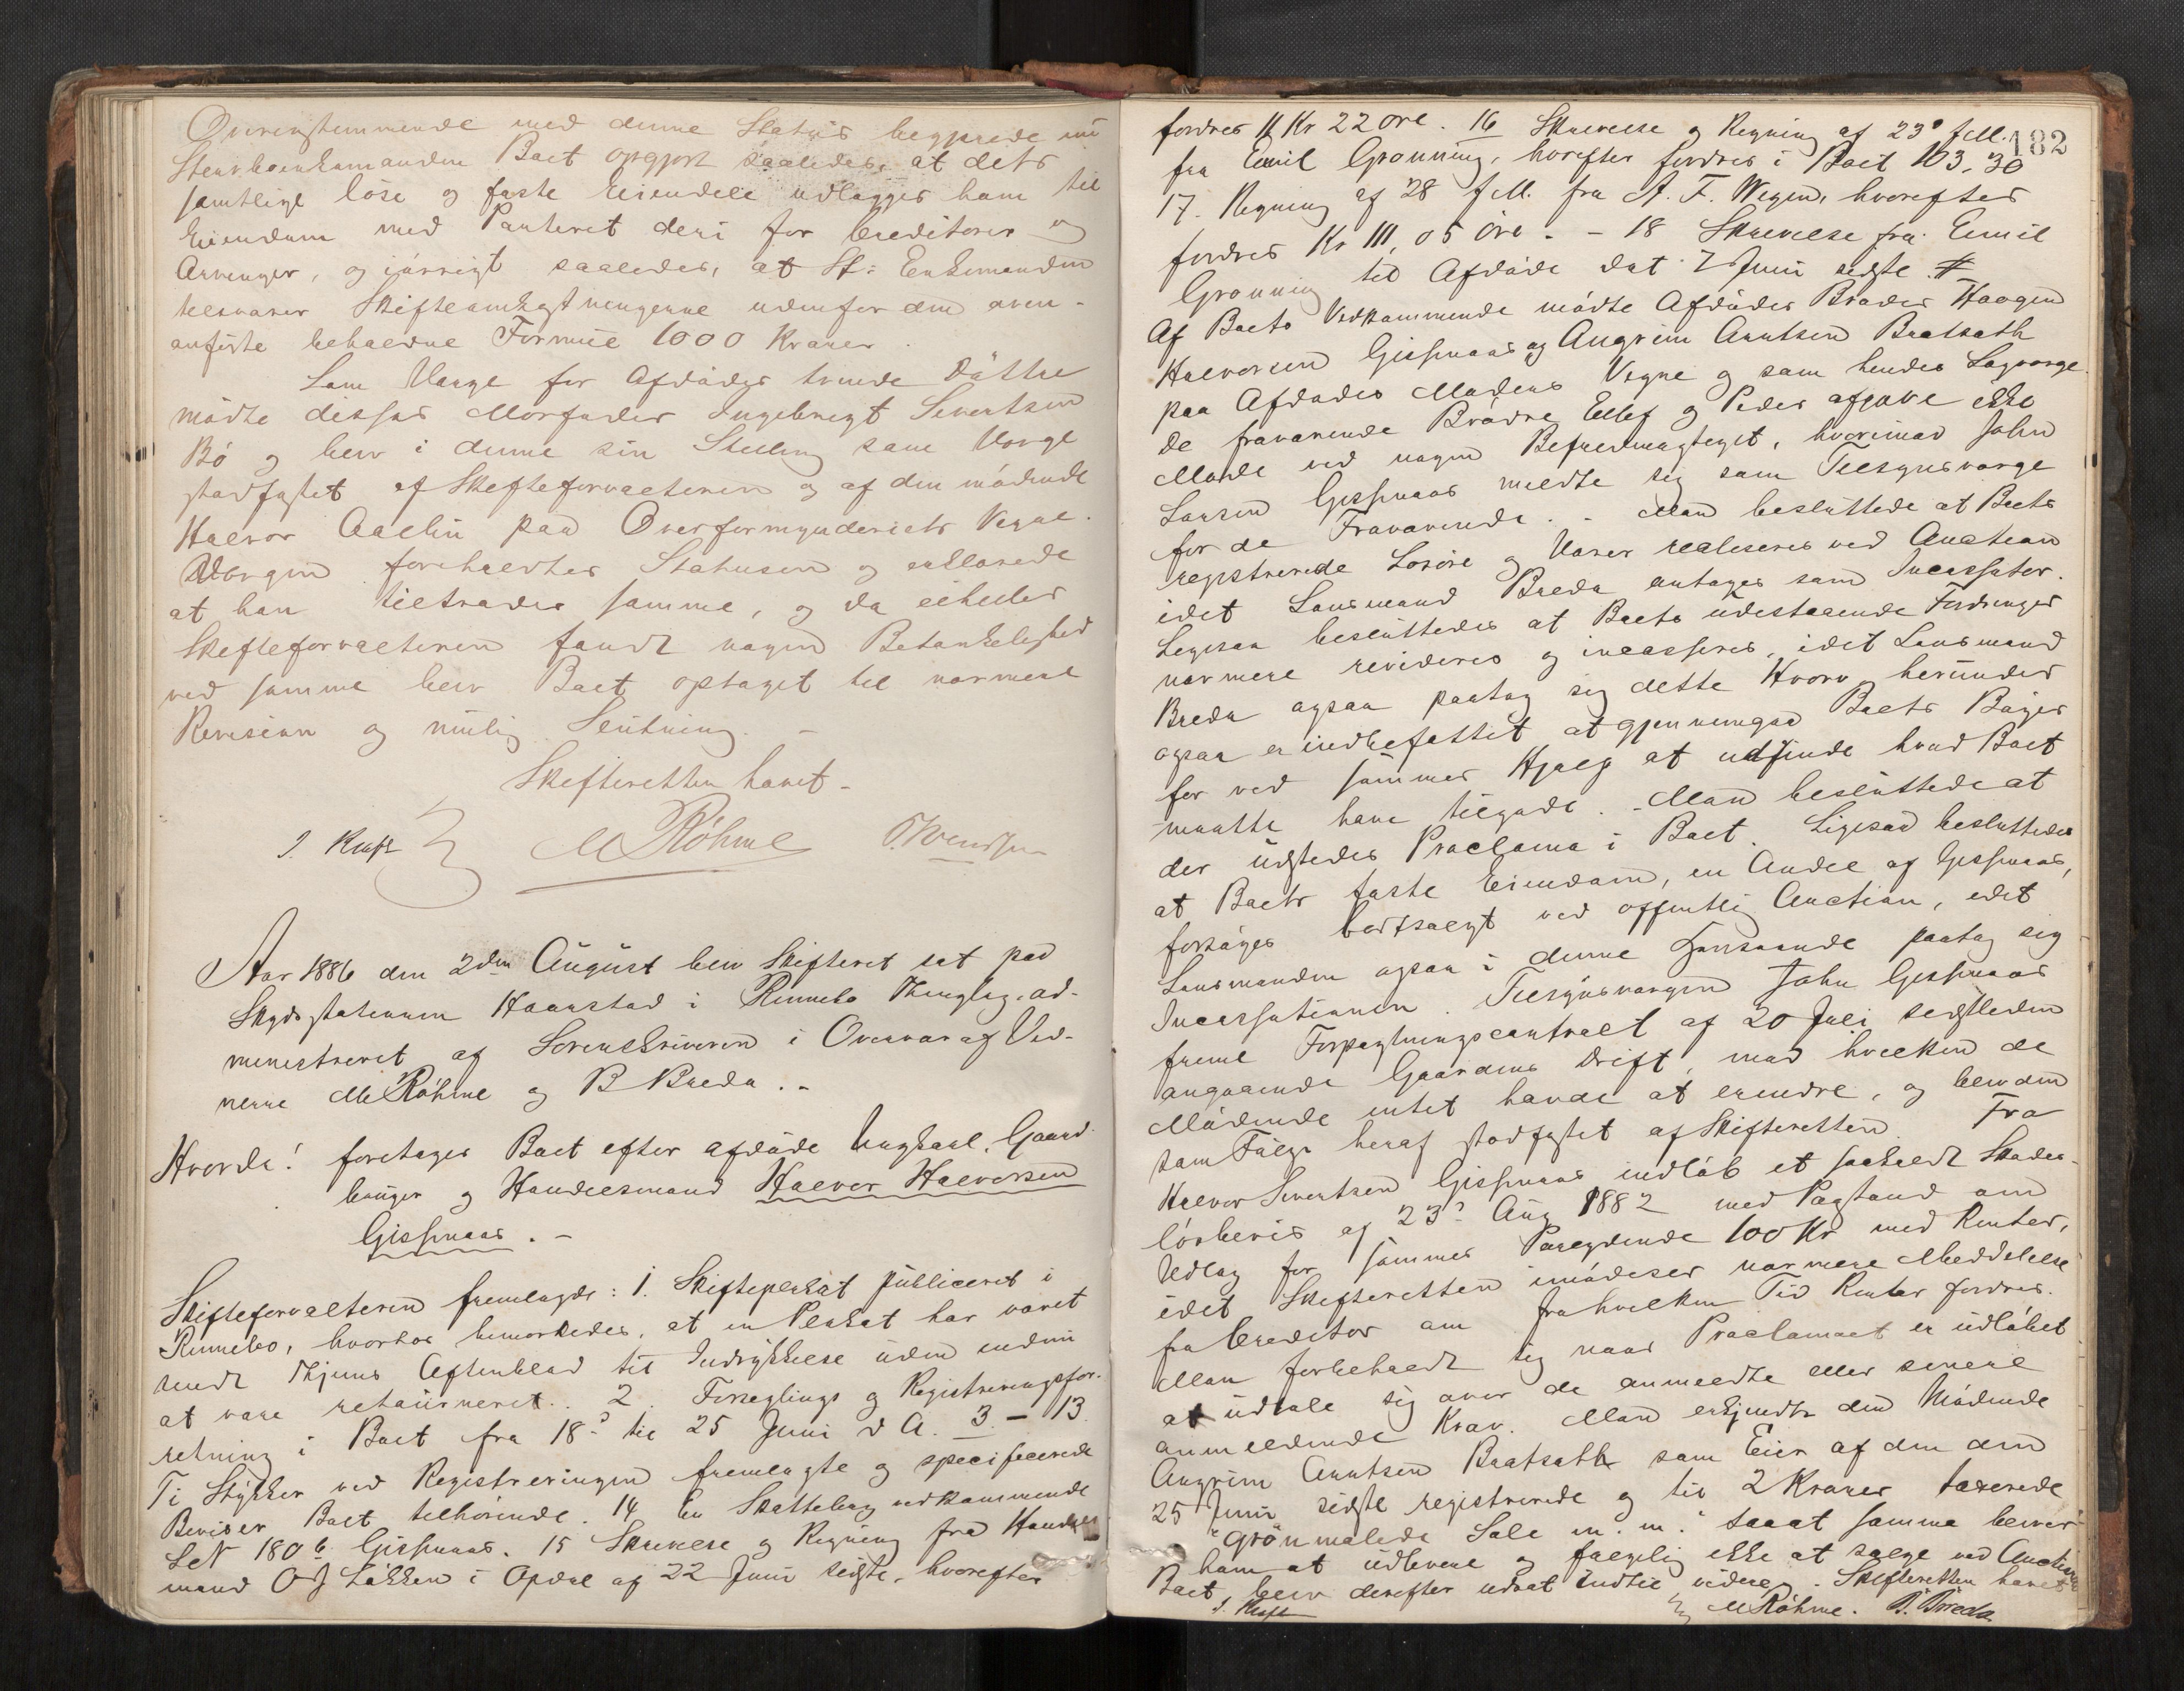 Overenstemmende med denne Status begjærede nu
Stervboenkemanden Boet opgjort saaledes, at dets
samtlige løse og faste Eiendele udlægges ham til
Eiendom med Panteret deri for Creditorer og
Arvinger, og iøvrigt saaledes, at St: Enkemanden
tilsvarer Skifteomkostningerne udenfor den oven-
anførte beholdne Formue 1000 Kroner.
Som Værge for Afdødes tvende Døttre
mødte disses Morfader Ingebrigt Sivertsen
Bö og blev i denne sin Stilling som Værge
stadfæstet af Skifteforvalteren og af den mødende
Halvor Aalbu paa Overformynderiets Vegne.
Værgen foreholdtes Statusen og erklærede
at han tiltræder samme, og da eiheller
Skifteforvalteren fandt nogen Betænkelighed
ved samme blev Boet optaget til nærmere
Revision og mulig Slutning. -
Skifteretten hævet -
J. Kraft M Röhme
Aar 1886 den 2den August blev Skifteret sat paa
Skydsstationen Haarstad i Rennebo Thinglag, ad-
ministreret af Sorenskriveren i Overvær af Vid-
nerne M Röhme og B Breda. -
Hvorda! foretages Boet efter afdøde Ungkarl, Gaard-
bruger og Handelsmand Halvor Halvorsen
Gisnaas. -
Skifteforvalteren fremlagde: 1. Skifteplakat publiceret i
Rennebo, hvorhos bemærkedes, at en Plakat har været
sendt Thjems Aftenblad til Indrykkelse uden endnu
at være retourneret. 2. Forseglings og Registreringsfor-
retning i Boet fra 18de til 25 Juni d A. 3 - 13.
Ti Stykker ved Registreringen fremlagte og specificerede
Beviser Boet tilhørende. 14 En Skattebog vedkommende
L.N 180 b Gisnaas. 15 Skrivelse og Regning fra Handels
mand O J Løkken i Opdal af 22 Juni sidste, hvorefter
182
fordres 11 Kr 22 Øre. 16 Skrivelse og Regning af 23de f. M.
fra Emil Grønning, hvorefter fordres i Boet 103,30
17. Regning af 28 f. M. fra A. F. Wegen, hvorefter
fordres Kr 111,05 Øre. - 18 Skrivelse fra Emil
Grønning til Afdøde dat 7 Juni sidste. #
Af Boets Vedkommende mødte Afdødes Broder Haagen
Halvorsen Gisnaas og Angrim Arntsen Bratsath
paa Afdødes Moders Vegne og som hendes Lagværge.
de fraværende Brødre Ellef og Peder afgave ikke
Møde ved nogen Befuldmægtiget, hvorimod John
Larsen Gisnaas meldte sig som Tilsynsværge
for de Fraværende. - Man besluttede at Boets
registrerede Løsøre og Varer realiseres ved Auction
idet Lensmand Breda antages som Incassator.
Ligesaa besluttedes at Boets udestaaende Fordringer
nærmere revideres og incasseres, idet Lensmand
Breda ogsaa paatog sig dette Hverv, herunder
ogsaa er indbefattet at gjennemgaa Boets Bøger
for ved sammes Hjælp at udfinde hvad Boet
maatte have tilgode. - Man besluttede at
der udstedes Proclama i Boet. Ligesaa besluttedes
at Boets faste Eiendom, en Andel af Gisnaas,
forsøges bortsolgt ved offentlig Auction, idet
Lensmanden ogsaa i denne Henseende paatog sig
Incassationen. Tilsynsværgen John Gisnaas
fremla Forpagtningscontract af 20 Juli sidstleden
angaaende Gaardens Drift, mod hvilken de
Mødende intet havde at erindre, og blev den
som Følge heraf stadfæstet af Skifteretten. Fra
Halvor Sivertsen Gisnaas indløb et saakaldt Skades-
løsbevis af 23de Aug 1882 med Paastand om
Udlæg for sammes Paalydende 100 Kr med Renter,
idet Skifteretten imødeser nærmere Meddelelse
fra Creditor om fra hvilken Tid Renter fordres.
Man forbeholdt sig naar Proclamaet er udløbet
at udtale sig over de anmeldte eller senere
anmeldende Krav. Man erkjendte den Mødende
Angrim Arntsen Bratsath som Eier af den den
25 Juni sidste registrerede og til 2 Kroner taxerede
"grönmalede Sele m. m." saaat samme bliver
ham at udlevere og følgelig ikke at sælge ved Auctionen
Boet blev derefter udsat indtil videre. - Skifteretten hævet
J. Kraft M Röhme. B. Breda